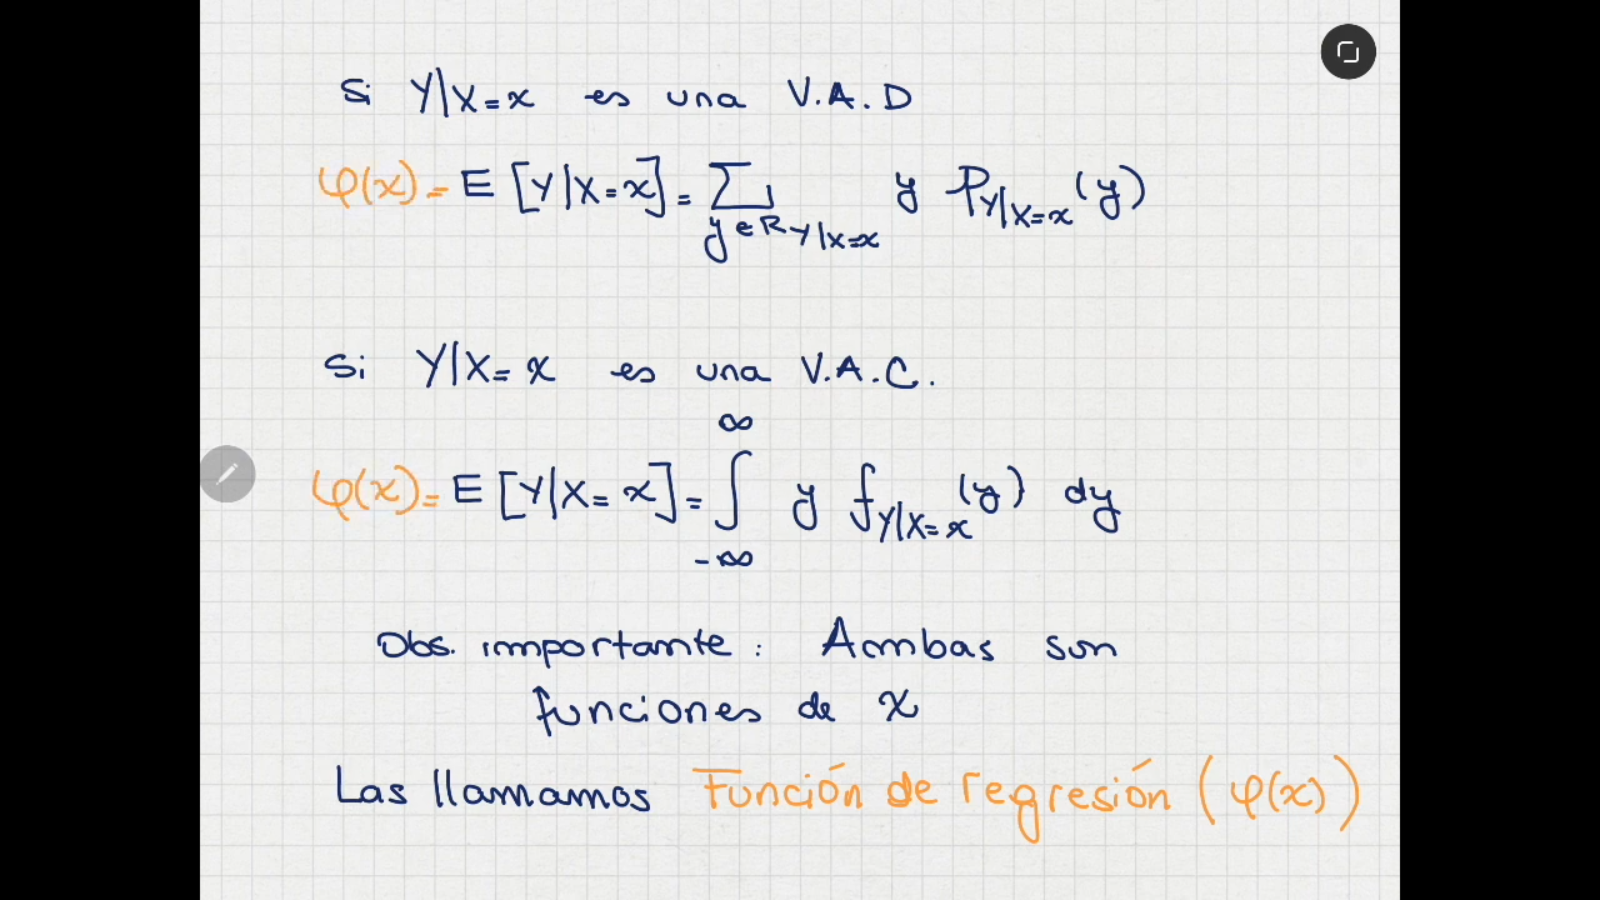 Si Y|X=x es una V.A.D
φ(x)= E [Y|X=x] = ∑ y∈R Y|X=x y P Y|X=x (y)
Si Y|X=x es una V.A.C.
φ(x)= E [Y|X=x] = ∫ -∞ ∞ y f Y|X=x (y) dy
Obs. importante: Ambas son
funciones de x
Las llamamos Función de regresión (φ(x))